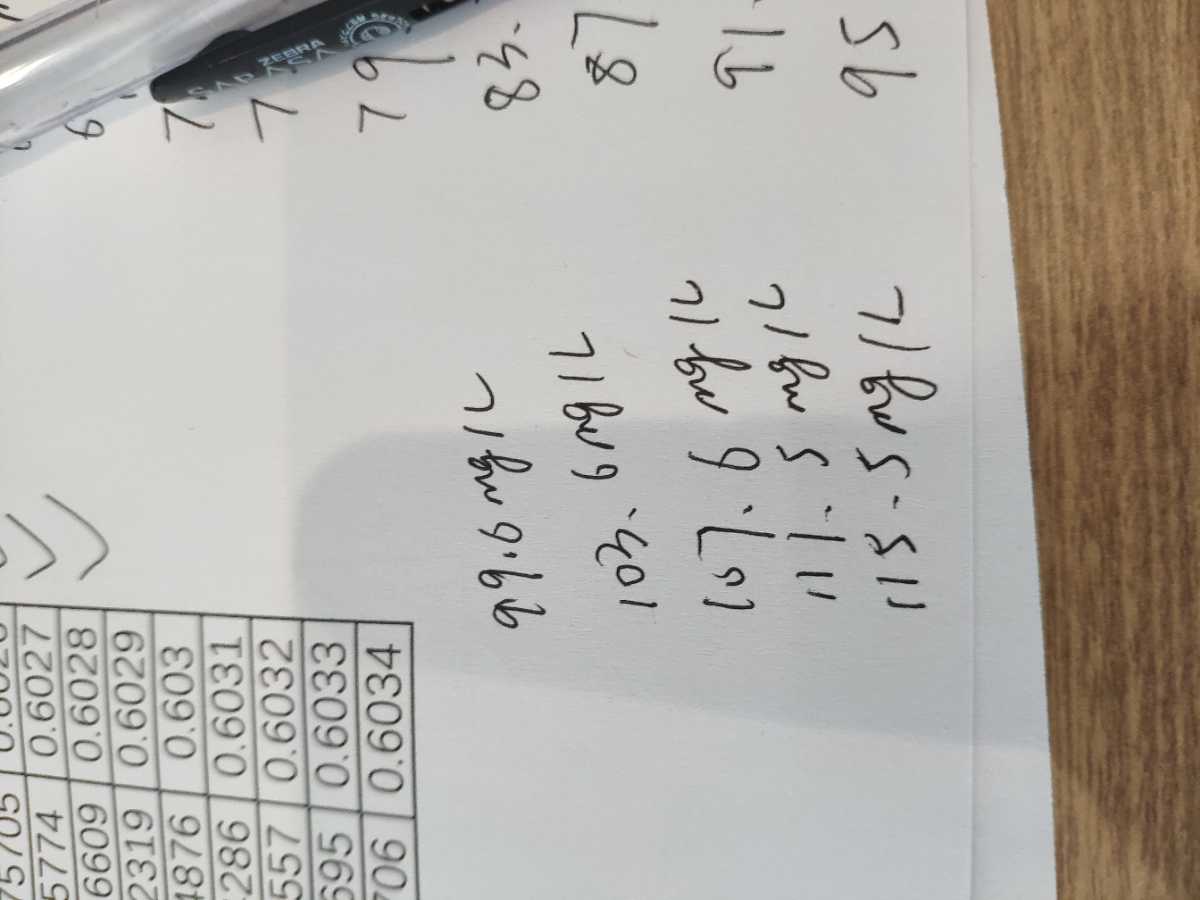 75705
5774 0.6027
6609 0.6028
2319 0.6029
4876 0.603
286 0.6031
557 0.6032
695 0.6033
706 0.6034
99.6 mg/L
103.6 mg/L
107.6 mg/L
111.5 mg/L
115.5 mg/L
6
7
7
79
83.
87
91.
95
ZEBRA
SARASA